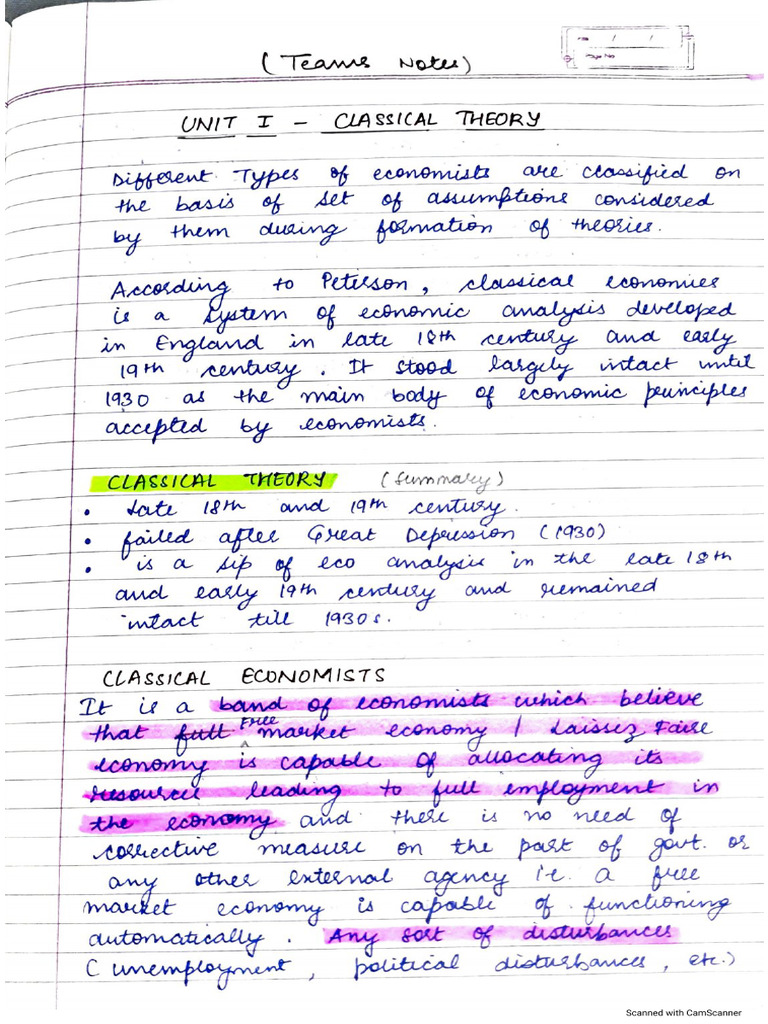 (Teams Notes)
Page No
UNIT I - CLASSICAL THEORY
Different Types of economists are classified on
the basis of set of assumptions considered
by them during formation of theories.
According to Peterson, classical economies
is a system of economic analysis developed
in England in late 18th century and early
19th century. It stood largely intact until
1930 as the main body of economic principles
accepted by economists.
CLASSICAL THEORY (Summary)
• Late 18th and 19th century.
• failed after Great Depression (1930)
• is a sip of eco analysis in the late 18th
and early 19th century and remained
intact till 1930s.
CLASSICAL ECONOMISTS
It is a band of economists which believe
that full Free market economy / Laissez Faire
economy is capable of allocating its
resources leading to full employment in
the economy and there is no need of
corrective measure on the part of govt. or
any other external agency i.e. a free
market economy is capable of functioning
automatically. Any sort of disturbances
(unemployment, political disturbances, etc.)
Scanned with CamScanner